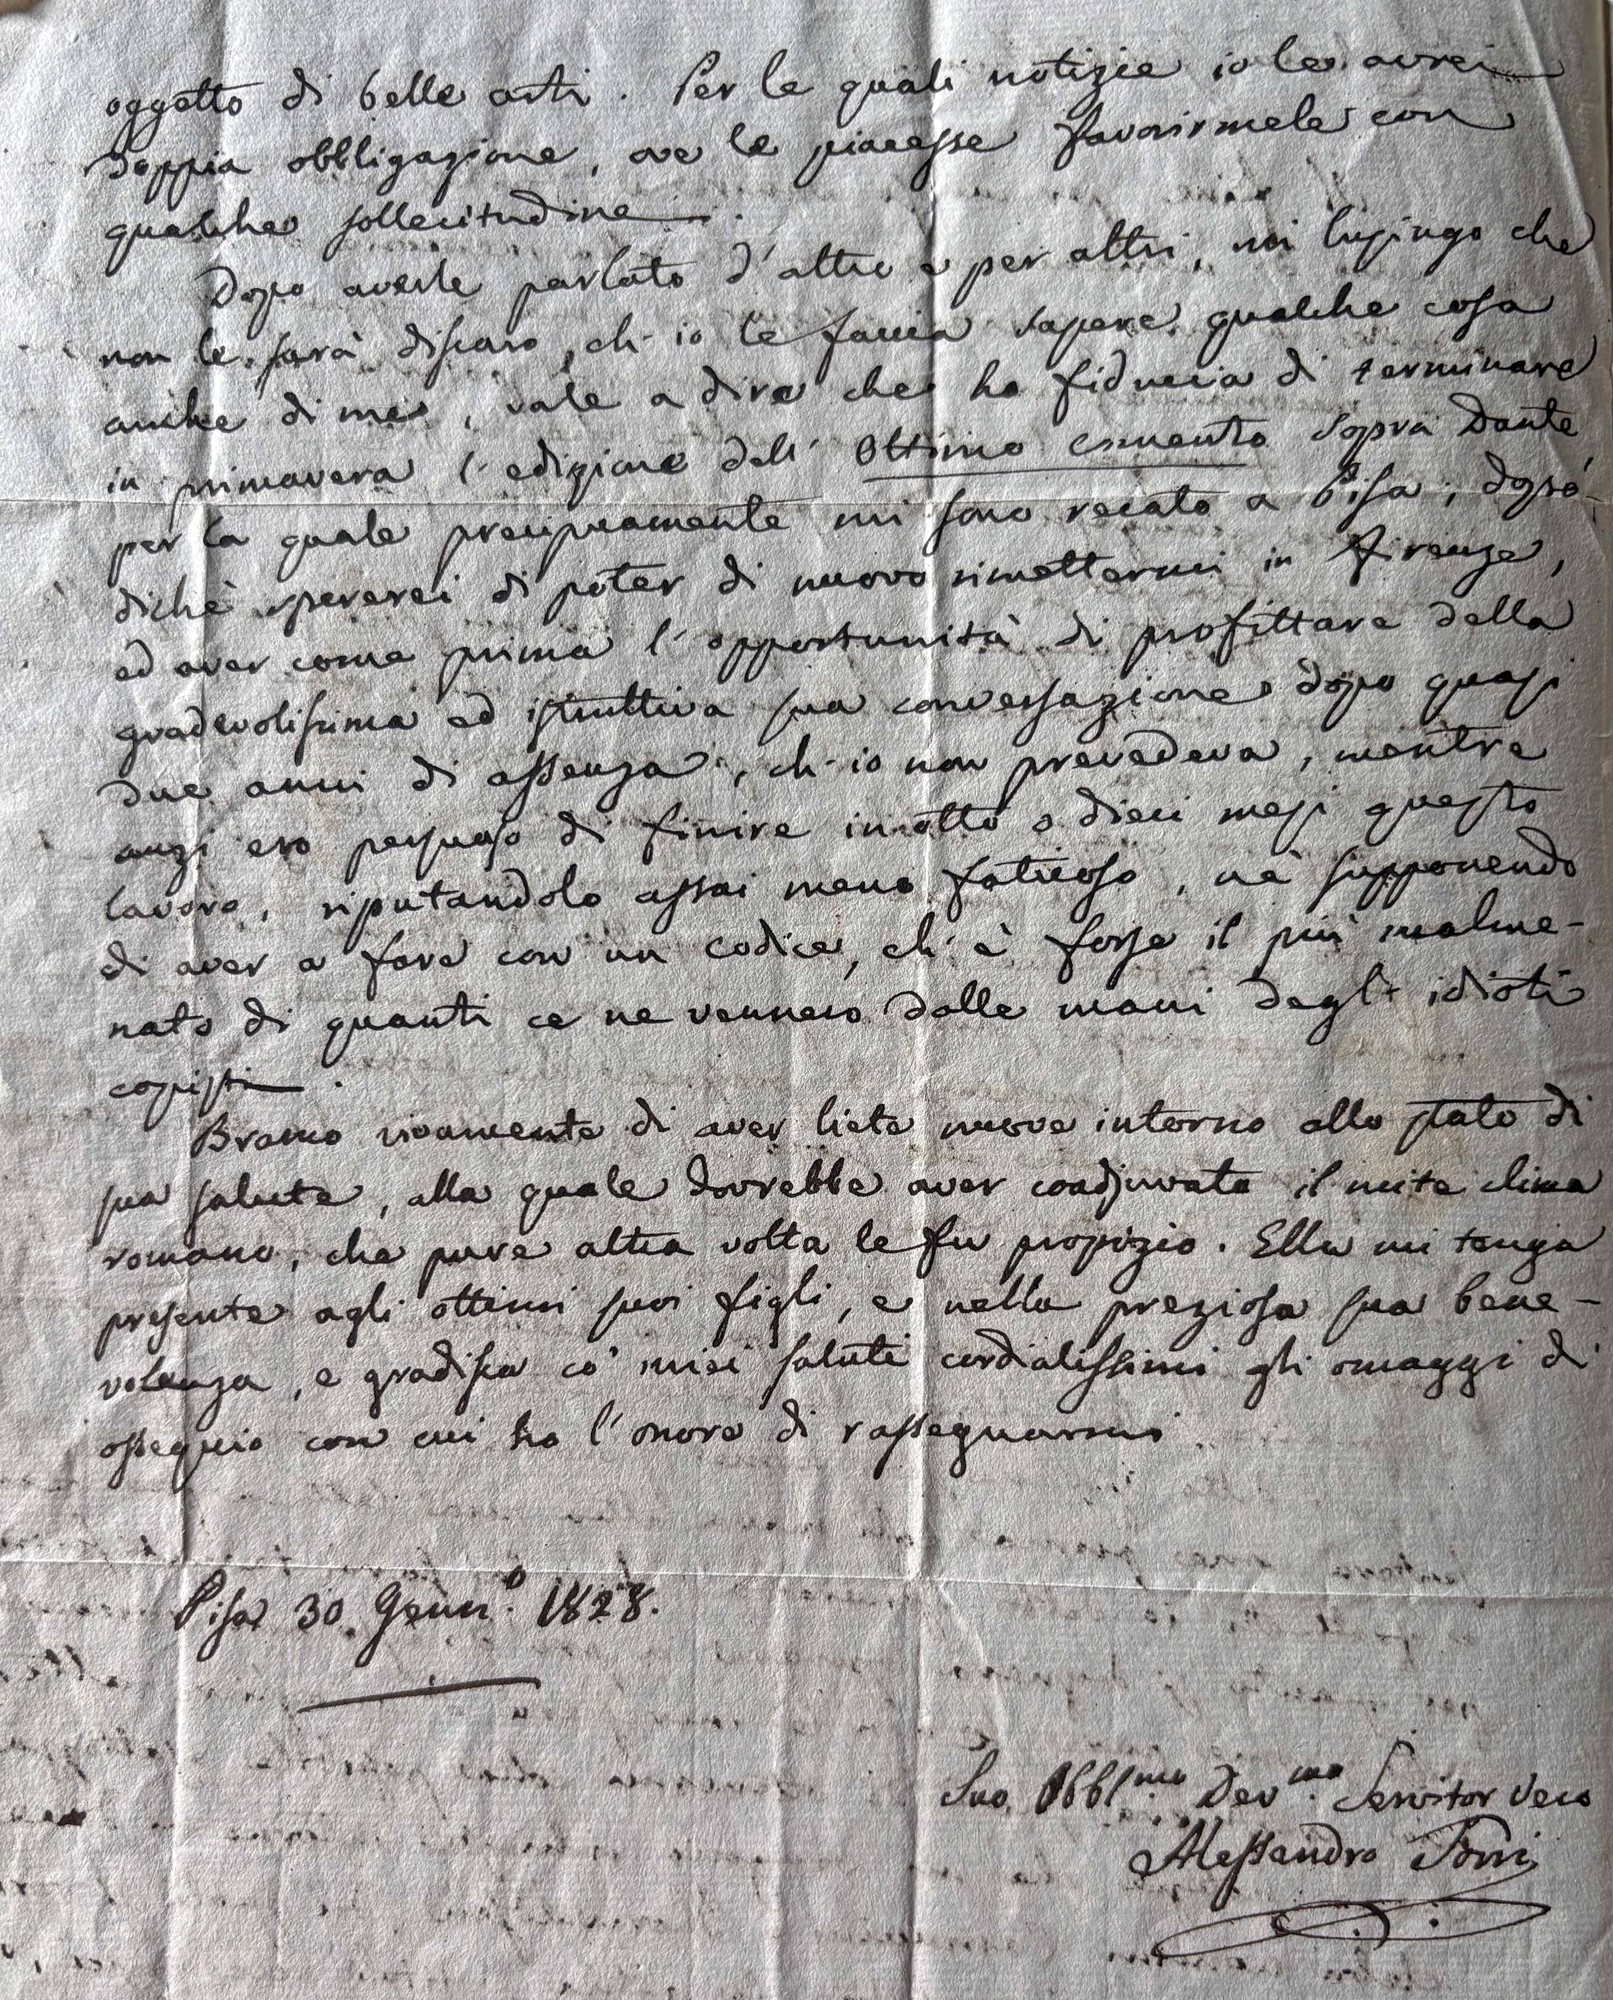 oggetto di belle arti. Per le quali notizie io le avrei
doppia obbligazione, ove le piacesse favorirmele con
qualche sollecitudine.
Dopo averle parlato d'altro e per altri, mi lusingo che
non le sarà discaro, ch'io le faccia sapere qualche cosa
anche di me, vale a dire che ho fiducia di terminare
in primavera l'edizione dell'Ottimo Comento sopra Dante,
per la quale precipuamente mi sono recato a Pisa; dopo-
dichè spererei di poter di nuovo rimettermi in Firenze,
ed aver come prima l'opportunità di profittare della
gradevolissima ed istruttiva sua conversazione dopo quasi
due anni di assenza, ch'io non prevedeva, mentre
anzi ero persuaso di finire in otto o dieci mesi questo
lavoro, riputandolo assai meno faticoso, nè supponendo
di aver a fare con un codice, ch'è forse il più malme-
nato di quanti ce ne vennero dalle mani degli idioti
copisti.
Bramo vivamente di aver liete nuove intorno allo stato di
sua salute, alla quale dovrebbe aver coadjuvato il mite clima
romano, che pure altra volta le fu propizio. Ella mi tenga
presente agli ottimi suoi figli, e nella preziosa sua bene-
volenza, e gradisca co' miei saluti cordialissimi gli omaggi di
ossequio con cui ho l'onore di rassegnarmi.
Pisa 30. Genn.o 1828.
Suo Obbl.mo Dev.mo Servitor Vero
Alessandro Torri